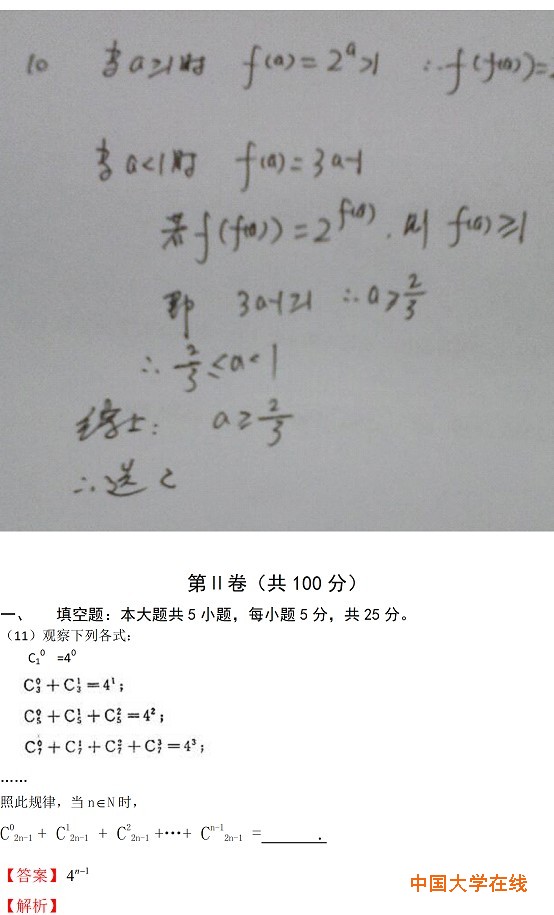 10 当a≥1时 f(a)=2^a>1 ∴f(f(a))=2
当a<1时 f(a)=3a-1
若f(f(a))=2^f(a),则 f(a)≥1
即 3a-1≥1 ∴a≥2/3
∴ 2/3≤a<1
综上: a≥2/3
∴选 C
第II卷(共100分)
一、 填空题:本大题共5小题,每小题5分,共25分。
(11)观察下列各式:
C₁⁰ =4⁰
C₃⁰+C₃¹=4¹;
C₅⁰+C₅¹+C₅²=4²;
C₇⁰+C₇¹+C₇²+C₇³=4³;
……
照此规律,当n∈N时,
C⁰₂ₙ₋₁ + C¹₂ₙ₋₁ + C²₂ₙ₋₁ +…+ Cⁿ⁻¹₂ₙ₋₁ =______.
【答案】4ⁿ⁻¹
【解析】
中国大学在线